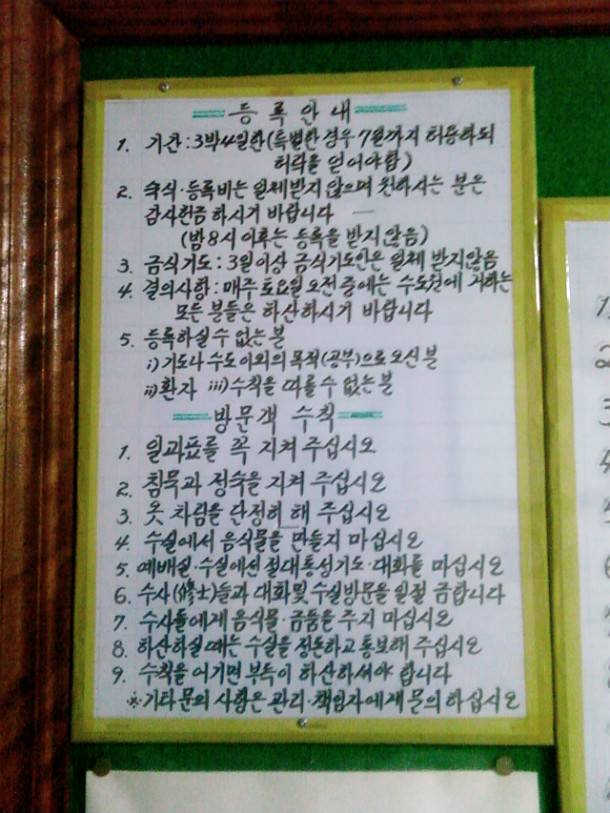 등록안내
1. 기간 : 3박4일한(특별한 경우 7일까지 허용하되
허락을 얻어야함)
2. 숙식·등록비는 일체받지 않으며 원하시는 분은
감사헌금 하시기 바랍니다
(밤 8시 이후는 등록을 받지 않음)
3. 금식기도 : 3일이상 금식기도인은 일체 받지않음
4. 결의사항 : 매주 토요일 오전 중에는 수도원에 거하는
모든 분들은 하산하시기 바랍니다
5. 등록하실 수 없는 분
i) 기도나 수도 이외의 목적(공부)으로 오신 분
ii) 환자 iii) 수칙을 따를 수 없는 분
방문객 수칙
1. 일과표를 꼭 지켜 주십시오
2. 침묵과 정숙을 지켜 주십시오
3. 옷 차림을 단정히 해 주십시오
4. 수실에서 음식물을 만들지 마십시오
5. 예배실·수실에선 절대통성기도·대화를 마십시오
6. 수사(修士)들과 대화및 수실방문을 일절 금합니다
7. 수사들에게 음식물·금품을 주지 마십시오
8. 하산하실 때는 수실을 정돈하고 통보해 주십시오
9. 수칙을 어기면 부득이 하산하셔야 합니다
※기타 문의 사항은 관리·책임자에게 문의 하십시오
1
2
3
4